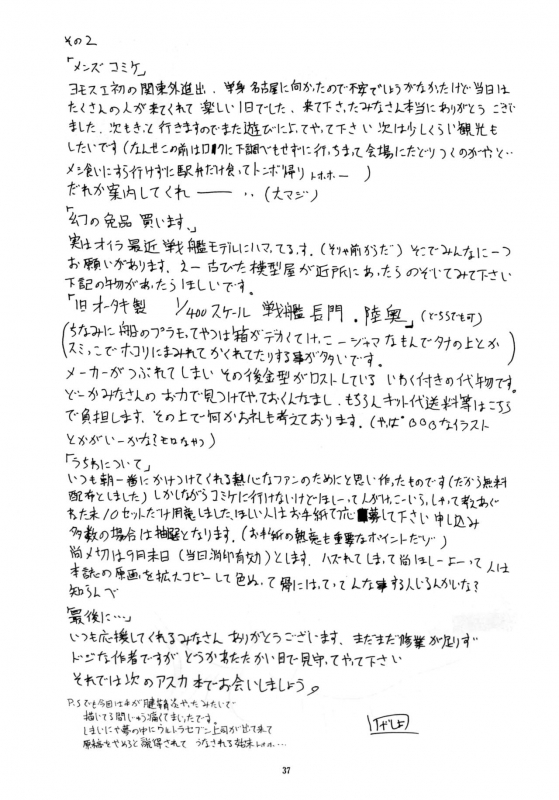 その2
「メンズコミケ」
ヨモスエ初の関東外進出、単身名古屋に向かったので不安でしょうがなかったけど当日は
たくさんの人が来てくれて楽しい1日でした、来て下さったみなさん本当にありがとうござい
ました、次もきっと行きますのでまた遊びによってやって下さい 次は少しくらい観光も
したいです(なんせこの前はロクに下調べもせずに行っちまって会場にたどりつくのがやっと‥
メシ食いにすら行けずに駅弁だけ食ってトンボ帰り トホホー )
だれか案内してくれ―― ‥(大マジ)
「幻の逸品 買います」
実はオイラ最近戦艦モデルにハマってるす。(そりゃ前からだ) そこでみんなに一つ
お願いがあります、えー古びた模型屋が近所にあったらのぞいてみて下さい
下記の物があったらほしいです。
「旧オータキ製 1/400スケール 戦艦長門・陸奥」(どっちでも可)
(ちなみに船のプラモってやつは箱がデカくてけっこージャマなもんでタナの上とか
スミっこでホコリにまみれてかくれてたりする事が多いです。)
メーカーがつぶれてしまいその後金型がロストしている いわく付きの代物です。
どーかみなさんのお力で見つけてやっておくんなまし、もちろんキット代送料等はこちら
で負担します、その上で何かお礼も考えております。(やっぱ〇〇〇なイラスト
とかがいーかな?モロなやつ)
「うちわについて」
いつも朝一番にかけつけてくれる熱心なファンのためにと思い作ったものです(だから無料
配布としました) しかしながらコミケに行けないけどほしーって人がけっこーいらっしゃって考えあぐ
ねた末10セットだけ用意しました、ほしい人はお手紙で応募して下さい 申し込み
多数の場合は抽選となります。(お手紙の熱意も重要なポイントだゾ)
尚〆切は9月末日(当日消印有効)とします、ハズれてしまって尚ほしーよーって人は
本誌の原画を拡大コピーして色ぬって帰にはってってんな事する人いるんかいな?
知らんぺ
「最後に…」
いつも応援してくれるみなさんありがとうございます、まだまだ修業が足りず
ドジな作者ですがどうかあたたかい目で見守ってやって下さい
それでは次のアスカ本でお会いしましょう。
P.S でも今回は手が腱鞘炎やったみたいで
描いてる間じゅう痛くてまいったです。
しまいにゃ夢の中にウルトラセブン上司が出て来て
原稿をやめろと説得されて うなされる始末トホホ…
37